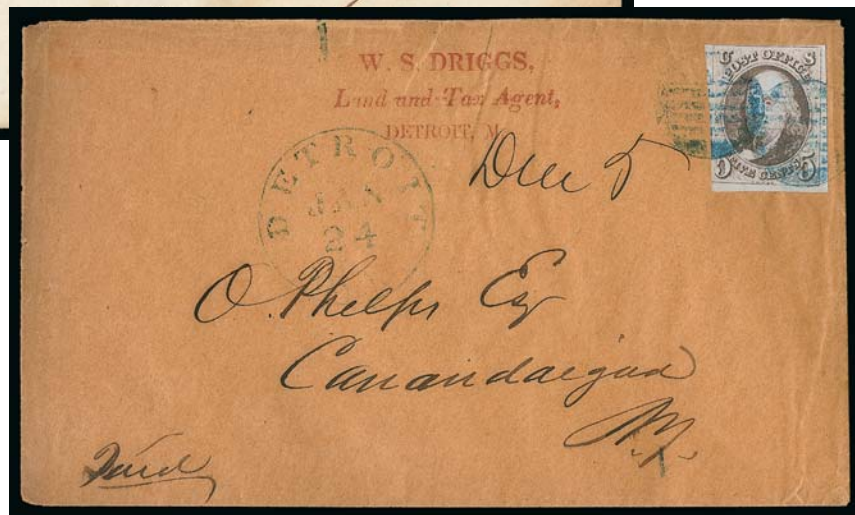 W. S. DRIGGS,
Land and Tax Agent,
DETROIT, M
U S
POST OFFICE
FIVE CENTS
5 5
DETROIT
JAN
24
Due 5
O. Phelps Esq
Canandaigua
N.Y.